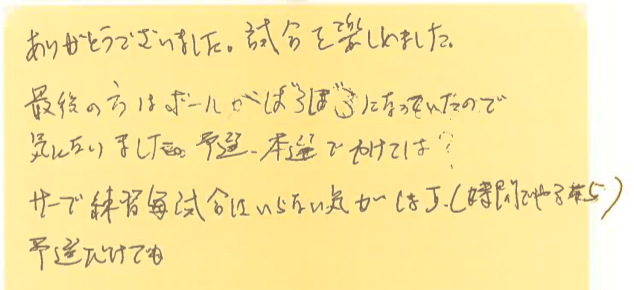 ありがとうございました。試合を楽しめました。
最後の方はボールがぼろぼろになっていたので
気になりました。予選、本選でわけては?
サーブ練習毎試合はいらない気がします。(時間でやるなら)
予選だけでも